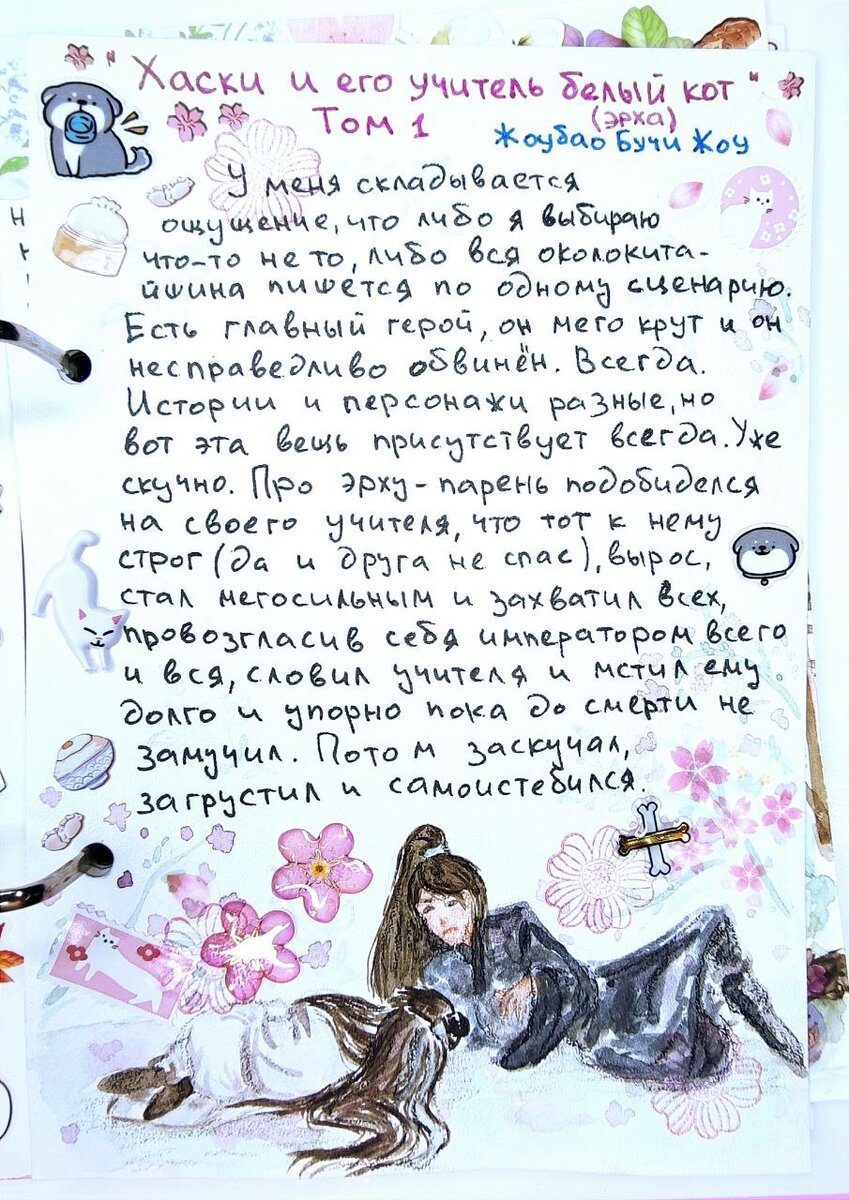 "Хаски и его учитель белый кот"
Том 1 (эрха)
Жоубао Бучи Жоу
У меня складывается
ощущение, что либо я выбираю
что-то не то, либо вся околокита-
йшина пишется по одному сценарию.
Есть главный герой, он мего крут и он
несправедливо обвинён. Всегда.
Истории и персонажи разные, но
вот эта вещь присутствует всегда. Уже
скучно. Про эрху - парень подобиделся
на своего учителя, что тот к нему
строг (да и друга не спас), вырос,
стал мегосильным и захватил всех,
провозгласив себя императором всего
и вся, словил учителя и мстил ему
долго и упорно пока до смерти не
замучил. Потом заскучал,
загрустил и самоистебился.